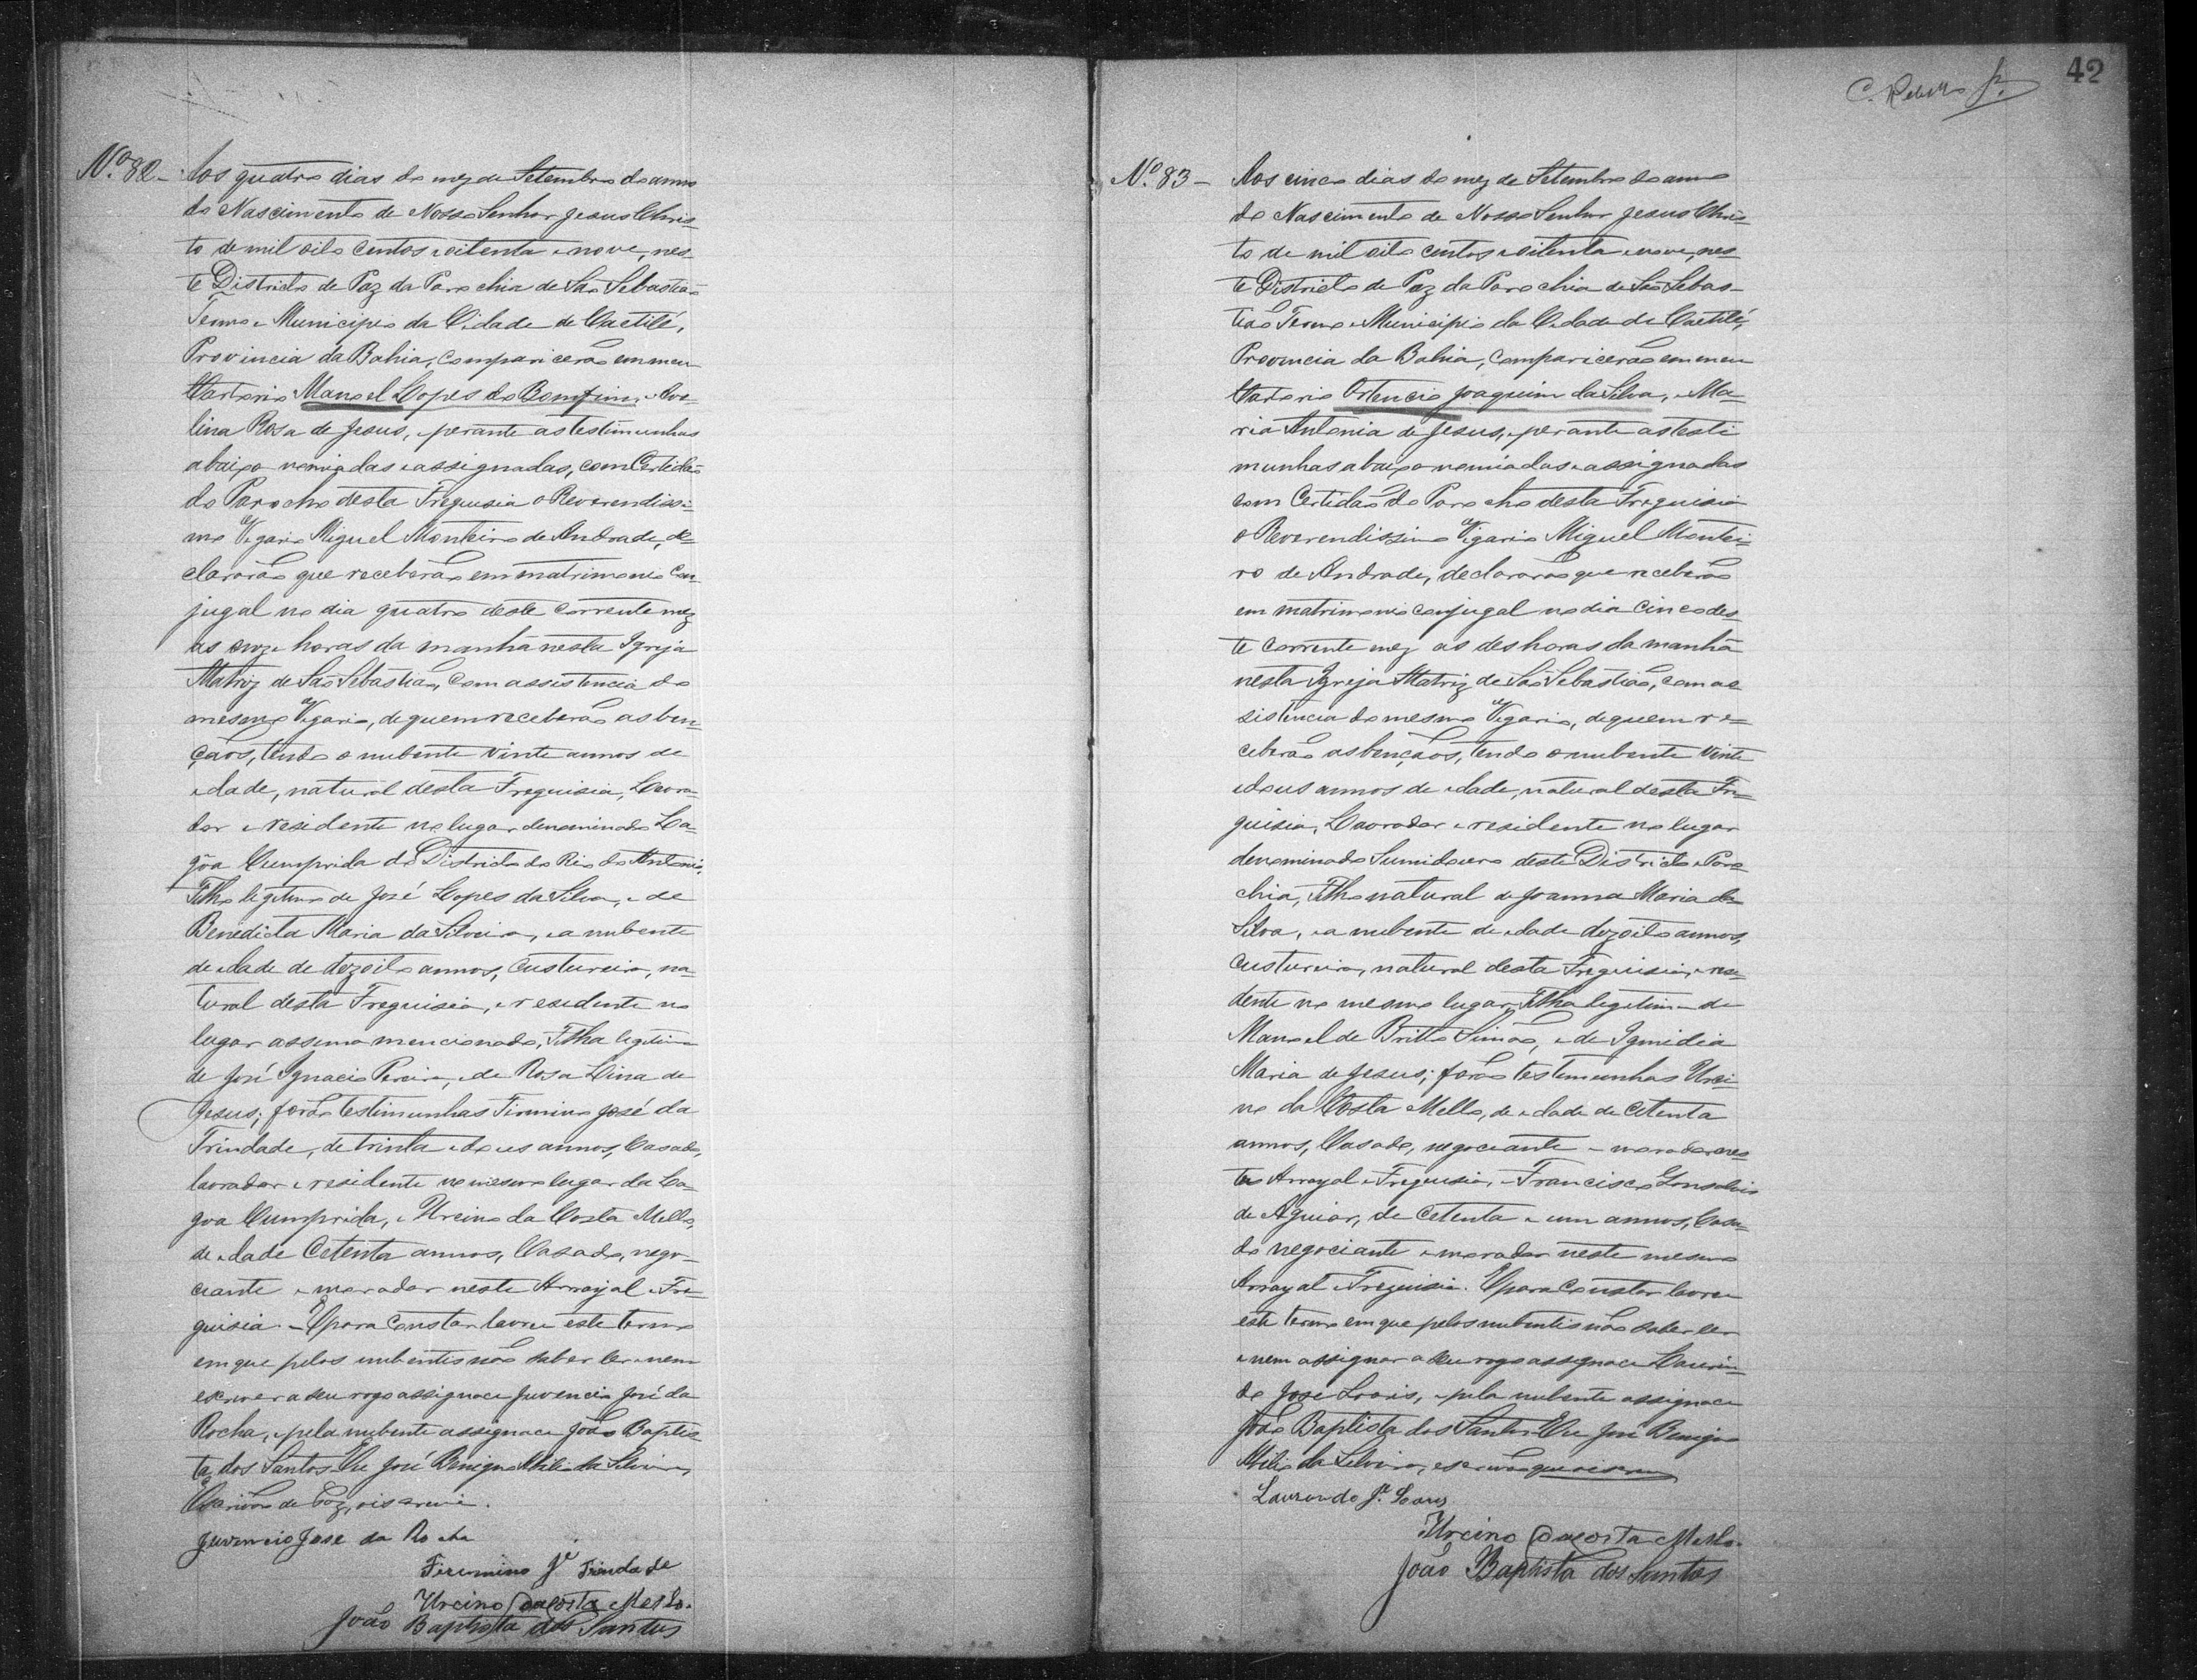 42
Nº 82 - Aos quatro dias do mez de Setembro do anno
do Nascimento de Nosso Senhor Jesus Chris-
to de mil oito centos e oitenta e nove, nes-
te Districto de Paz da Parochia de São Sebastião
Termo e Municipio da Cidade de Caetité,
Provincia da Bahia, comparicerão em meu
Cartorio Manoel Lopes do Bomfim, e
lina Rosa de Jesus, e perante as testimunhas
abaixo nomiadas e assignadas, com Certidão
do Parocho desta Freguisia o Reverendissi-
mo Vigario Miguel Monteiro de Andrade, de-
clararão que receberão em matrimonio con-
jugal no dia quatro deste corrente mez
as onze horas da manhã nesta Igreja
Matriz de São Sebastião, com assistencia do
mesmo Vigario, de quem receberão as ben-
çãos, tendo o nubente vinte annos de
idade, natural desta Freguisia, Lavra-
dor e residente no lugar denominado La-
gôa Cumprida do Districto do Rio do Antonio,
Filho legitimo de José Lopes da Silva, e de
Benedicta Maria da Silveira, e a nubente
de idade de dezoito annos, Custureira, na-
tural desta Freguisia, e residente no
lugar assema mencionado, Filha legitima
de José Ignacio Pereira, e de Rosa Lina de
Jesus; forão testimunhas Firmino José da
Trindade, de trinta e dous annos, Casado,
lavrador e residente no mesmo lugar da La-
goa Cumprida, e Urcino da Costa Mello,
de idade Cetenta annos, Casado, nego-
ciante e morador neste Arrayal e Fre-
guisia. E para constar lavrei este termo
em que pelos nubentes não saber ler e nem
escrever a seu rogo assignou Juvencio José da
Rocha, e pela nubente assignou João Baptis-
ta dos Santos. Eu José Benigno da Silveira,
Escrivão de Paz, o iscrevi.
Juvencio Jose da Rocha
Firmino Jé Trindade
Urcino da Costa Mello.
João Baptista dos Santos
Nº 83 - Aos cinco dias do mez de Setembro do anno
do Nascimento de Nosso Senhor Jesus Chris-
to de mil oito centos e oitenta e nove, nes-
te Districto de Paz da Parochia de São Sebas-
tião Termo e Municipio da Cidade de Caetité,
Provincia da Bahia, comparicerão em meu
Cartorio Ortencio Joaquim da Silva, e Ma-
ria Antonia de Jesus, e perante as testi
munhas abaixo nomiadas e assignadas
com Certidão do Parocho desta Freguisia
o Reverendissimo Vigario Miguel Montei-
ro de Andrade, declararão que receberão
em matrimonio conjugal no dia cinco des-
te corrente mez as des horas da manhã
nesta Igreja Matriz de São Sebastião, com as
sistencia do mesmo Vigario, de quem re-
ceberão as bençãos, tendo o nubente vinte
e dous annos de idade, natural desta Fre-
guisia, Lavrador e residente no lugar
denominado Sumidouro deste Districto e Paro
chia, Filho natural de Joanna Maria da
Silva, e a nubente de idade dezoito annos,
Custureira, natural desta Freguisia, e resi-
dente no mesmo lugar, Filha legitima de
Manoel de Britto Simão, e de Igmidia
Maria de Jesus; forão testimunhas Urci-
no da Costa Mello, de idade de Cetenta
annos, Casado, negociante e morador nes-
te Arrayal e Freguisia, e Francisco Gonsalvis
de Aguiar, de Cetenta e um annos, Casa-
do negociante e morador neste mesmo
Arrayal e Freguisia. E para constar lavrei
este termo em que pelos nubentes não saber ler
e nem assignar a seu rogo assignou Laurin-
do José Soaris, e pela nubente assignou
João Baptista dos Santos. Eu José Benigno
da Silveira, escrivão que o iscrevi
Laurindo Jé Soares
Urcino da Costa Mello.
João Baptista dos Santos